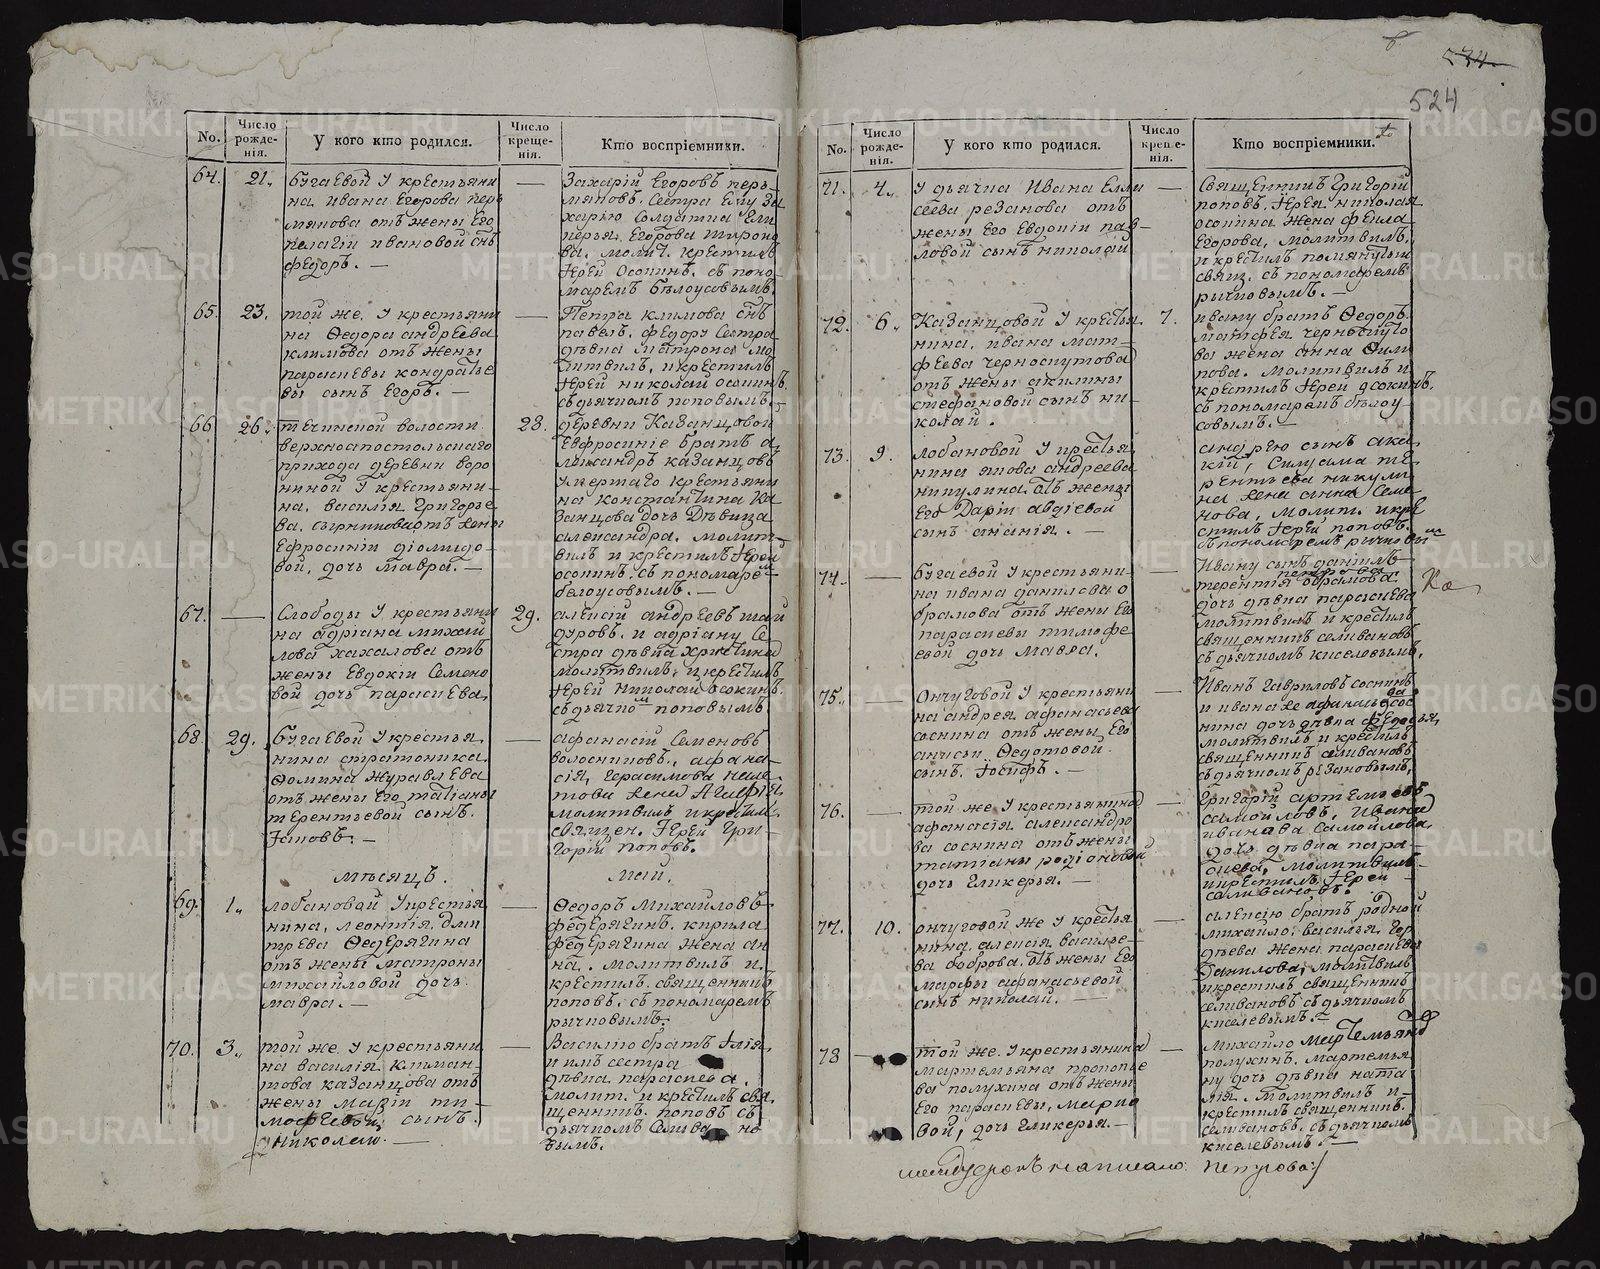 274.
524
No.
Число рожде-нія.
У кого кто родился.
Число креще-нія.
Кто воспріемники.
64.
21.
Бугаевой У крестьяни
на ивана Егорова перь
мякова отъ жены Его
пелагіи ивановой снъ
федоръ. —
—
Захарій Егоровъ перь-
мяковъ. Сестра Ему За
харію Солдатка
Егорова
ва, молит. крестилъ
Іерей Осокинъ. съ поно-
маремъ бѣлоусовымъ.
65.
23.
той же. У крестьяни
на Ѳедора андреева
климова отъ жены
параскевы кондратье
вы сынъ Егоръ. —
—
Петра климова снъ
павелъ. федору Сестра
дѣвка матрона мо
литвилъ. и крестилъ
Іерей николай осокинъ.
съ дьячкомъ поповымъ.
66
26.
теченской волости
верхнеапостольскаго
прихода деревни воро
ниной У крестьяни-
на. василія Григорье
ва. отъ жены
Ефросиніи діомидо-
вой. дочь мавра. —
28.
деревни Казанцовой
Евфросиніе братъ а
лександръ казанцовъ
умершаго крестьяни
на константина Ка
занцова дочь Дѣвица
александра. молит-
вилъ и крестилъ Іерей
осокинъ. съ пономаремъ
белоусовымъ. —
67.
—
Слободы У крестьяни
на адріана михай
лова хахалова отъ
жены Евдокіи Семено
вой дочь параскева,
29.
алексій андреевъ шай
дуровъ. и адріану Се
стра дѣвка христина
молитвилъ. и крестилъ
Іерей Николай осокинъ.
съ дьячкомъ поповымъ.
68
29.
Бугаевой У крестья.
нина стратоника
Ѳомина Журавлева
отъ жены Его татіаны
терентьевой сынъ.
Іаковъ: —
—
афанасій Семеновъ
волосниковъ., афана-
сія, Герасимова
жена Агафія.
молитвилъ и крестилъ
священ. Іерей Гри-
горій поповъ.
мѣсяцъ.
май.
69.
1.
лобановой У крестья
нина, леонтія. Дми
трева Ѳедерягина
отъ жены матроны
михайловой дочь.
мавра. —
—
Ѳедоръ михайловъ
федерягинъ. кирила
федерягина жена ан
на. молитвилъ и.
крестилъ. священникъ
поповъ. съ пономаремъ
рычковымъ.
70.
3.
той же. У крестьяни
на василія. климан-
това казанцова отъ
жены марѳи ти-
мофеевой, сынъ.
николай. —
—
Василію братъ Ілія,
и имъ сестра
дѣвка параскева.
молит. и крестилъ свя.
щенникъ. поповъ съ
дьячкомъ Селива но
вымъ.
No.
Число рожде-нія.
У кого кто родился.
Число креще-нія.
Кто воспріемники.
71.
4.
У дьячка Ивана Ели
сеева резанова отъ
жены Его Евдокіи пав-
ловой сынъ николай
—
Священникъ Григорій
поповъ. Іерея николая
осокина жена фекла
Егорова. молитвилъ.
и крестилъ помянутый
свящ. съ пономаремъ
рычковымъ. —
72.
6.
Казанцовой У крестья.
нина. ивана мат-
феева черноскутова
отъ жены акилины
стефановой сынъ ни-
колай.
7.
ивану братъ Ѳедоръ.
матфея черноскуто
ва жена анна Фили
пова. молитвилъ и
крестилъ Іерей осокинъ.
съ пономаремъ бѣлоу-
совымъ. —
73.
9.
лобановой У крестья
нина якова андреева
никулина. отъ жены
Его Даріи авдіевой
сынъ ананія. —
—
андрею сынъ ака
кій, те
рентьева никули
на жена анна Семе
нова, молит. и кре
стилъ Іерей поповъ.
съ пономаремъ рычковымъ
74.
—
Бугаевой У крестьяни-
на ивана данилова а
брамова отъ жены Его
параскевы тимофе
евой дочь мавра.
—
Ивану сынъ данилъ
петрова
терентія абрамова.
дочь дѣвка параскева
молитвилъ и крестилъ
священникъ селивановъ
съ дьячкомъ киселевымъ.
75.
—
Ончуговой У крестьяни
на андрея афанасьева
соснина отъ жены Его
анисьи. Ѳедотовой.
сынъ. Іосифъ. —
—
Иванъ Гавриловъ соснинъ
и ивана же афанасьева сос
нина дочь дѣвка федосья,
молитвилъ и крестилъ
священникъ селивановъ
съ дьячкомъ резановымъ.
76.
—
той же У крестьянина
афанасія александро
ва соснина отъ жены
татіаны родіоновой
дочь Гликерья. —
—
Григорій артемьевъ
самойловъ, ивана
иванова самойлова
дочь дѣвка пара-
скева, молитвилъ
и крестилъ Іерей
селивановъ.
77.
10.
ончуговой же У крестья
нина. алексія василье-
ва боброва. отъ жены Его
марфы афанасьевой
сынъ николай. —
—
алексію братъ родной
михайло. василья. Гор
дѣева жена параскева
Данилова, молитвилъ
и крестилъ священникъ
селивановъ съ дьячкомъ
киселевымъ. —
78
—
той же. У крестьянина
мартемьяна прокопье
ва полухина отъ жены
Его параскевы, марко
вой, дочь Гликерья. —
—
Михайло Мартемьяновъ
полухинъ. мартемья
ну дочь дѣвка ната
лія. Молитвилъ и
крестилъ священникъ.
селивановъ. съ дьячкомъ
киселевымъ. —
между строкъ написано: петрова:/